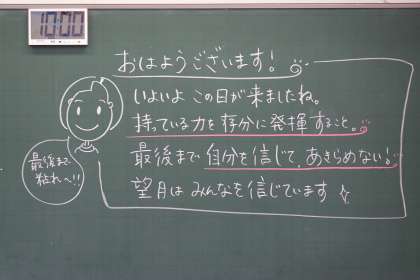 10:00
おはようございます！
いよいよ この日が来ましたね。
持っている力を存分に発揮すること。
最後まで 自分を信じて、あきらめない！
望月は みんなを信じています
最後まで
粘れ〜!!